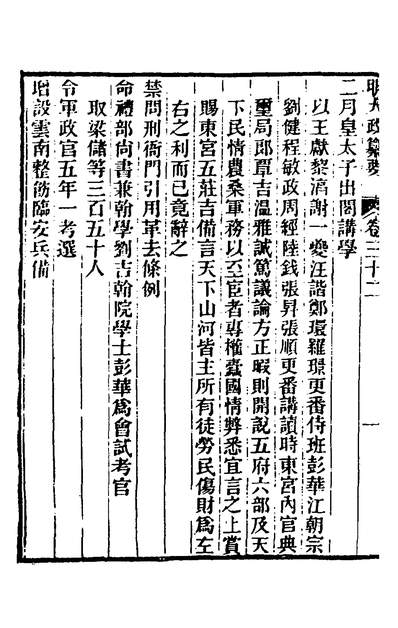 明大政纂要 卷三十二 一
二月皇太子出閣講學
以王獻黎淳謝一夔汪諧鄭環羅璟更番侍班彭華江朝宗
劉健程敏政周經陸釴張昇張順更番講讀時東宮內官典
璽局郎覃吉溫雅誠篤議論方正暇則開說五府六部及天
下民情農桑軍務以至宦者專權蠹國情弊悉宜言之上賞
賜東宮五莊吉備言天下山河皆主所有徒勞民傷財為左
右之利而已竟辭之
禁問刑衙門引用革去條例
命禮部尚書兼翰學劉吉翰院學士彭華爲會試考官
取梁儲等三百五十人
令軍政官五年一考選
增設雲南整飭臨安兵備